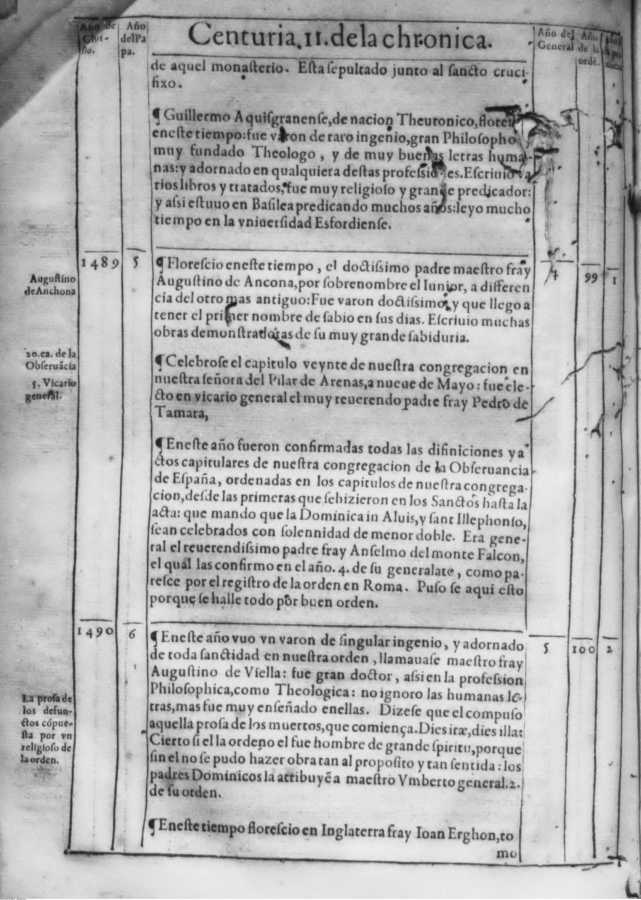 Año de Chri-sto.
Año del Pa pa.
Centuria. 11. de la chronica.
Año del General
Año de la ordē.
de aquel monasterio. Esta sepultado junto al sancto cruci-
fixo.
¶ Guillermo Aquisgranense, de nacion Theutonico, florescio
eneste tiempo: fue varon de raro ingenio, gran Philosopho
muy fundado Theologo, y de muy buenas letras huma-
nas: y adornado en qualquiera destas professiões. Escriuio va
rios libros y tratados, fue muy religioso y grande predicador:
y assi estuuo en Basilea predicando muchos años: leyo mucho
tiempo en la vniuersidad Esfordiense.
1489 5
4 99 1
Augustino
de Anchona
¶ Florescio eneste tiempo, el doctissimo padre maestro fray
Augustino de Ancona, por sobrenombre el Iunior, a differen
cia del otro mas antiguo: Fue varon doctissimo, y que llego a
tener el primer nombre de sabio en sus dias. Escriuio muchas
obras demonstradoras de su muy grande sabiduria.
20. ca. de la
Obseruācia
5. Vicario
general.
¶ Celebrose el capitulo veynte de nuestra congregacion en
nuestra señora del Pilar de Arenas, a nueue de Mayo: fue ele-
cto en vicario general el muy reuerendo padre fray Pedro de
Tamara,
¶ Eneste año fueron confirmadas todas las difiniciones y a-
ctos capitulares de nuestra congregacion de la Obseruancia
de España, ordenadas en los capitulos de nuestra congrega-
cion, desde las primeras que se hizieron en los Sanctos hasta la
acta: que mando que la Dominica in Aluis, y sant Illephonso,
sean celebrados con solennidad de menor doble. Era gene-
ral el reuerendissimo padre fray Anselmo del monte Falcon,
el qual las confirmo en el año. 4. de su generalate, como pa-
resce por el registro de la orden en Roma. Puso se aqui esto
porque se halle todo por buen orden.
1490 6
5 100 2
¶ Eneste año vuo vn varon de singular ingenio, y adornado
de toda sanctidad en nuestra orden, llamauase maestro fray
Augustino de Viella: fue gran doctor, assi en la profession
Philosophica, como Theologica: no ignoro las humanas le-
tras, mas fue muy enseñado enellas. Dizese que el compuso
aquella prosa de los muertos, que comiença. Dies iræ, dies illa:
Cierto si el la ordeno el fue hombre de grande spiritu, porque
sin el no se pudo hazer obra tan al proposito y tan sentida: los
padres Dominicos la attribuyē a maestro Vmberto general. 2.
de su orden.
La prosa de
los defun-
ctos cōpue-
sta por vn
religioso de
la orden.
¶ Eneste tiempo florescio en Inglaterra fray Ioan Erghon, to
mo